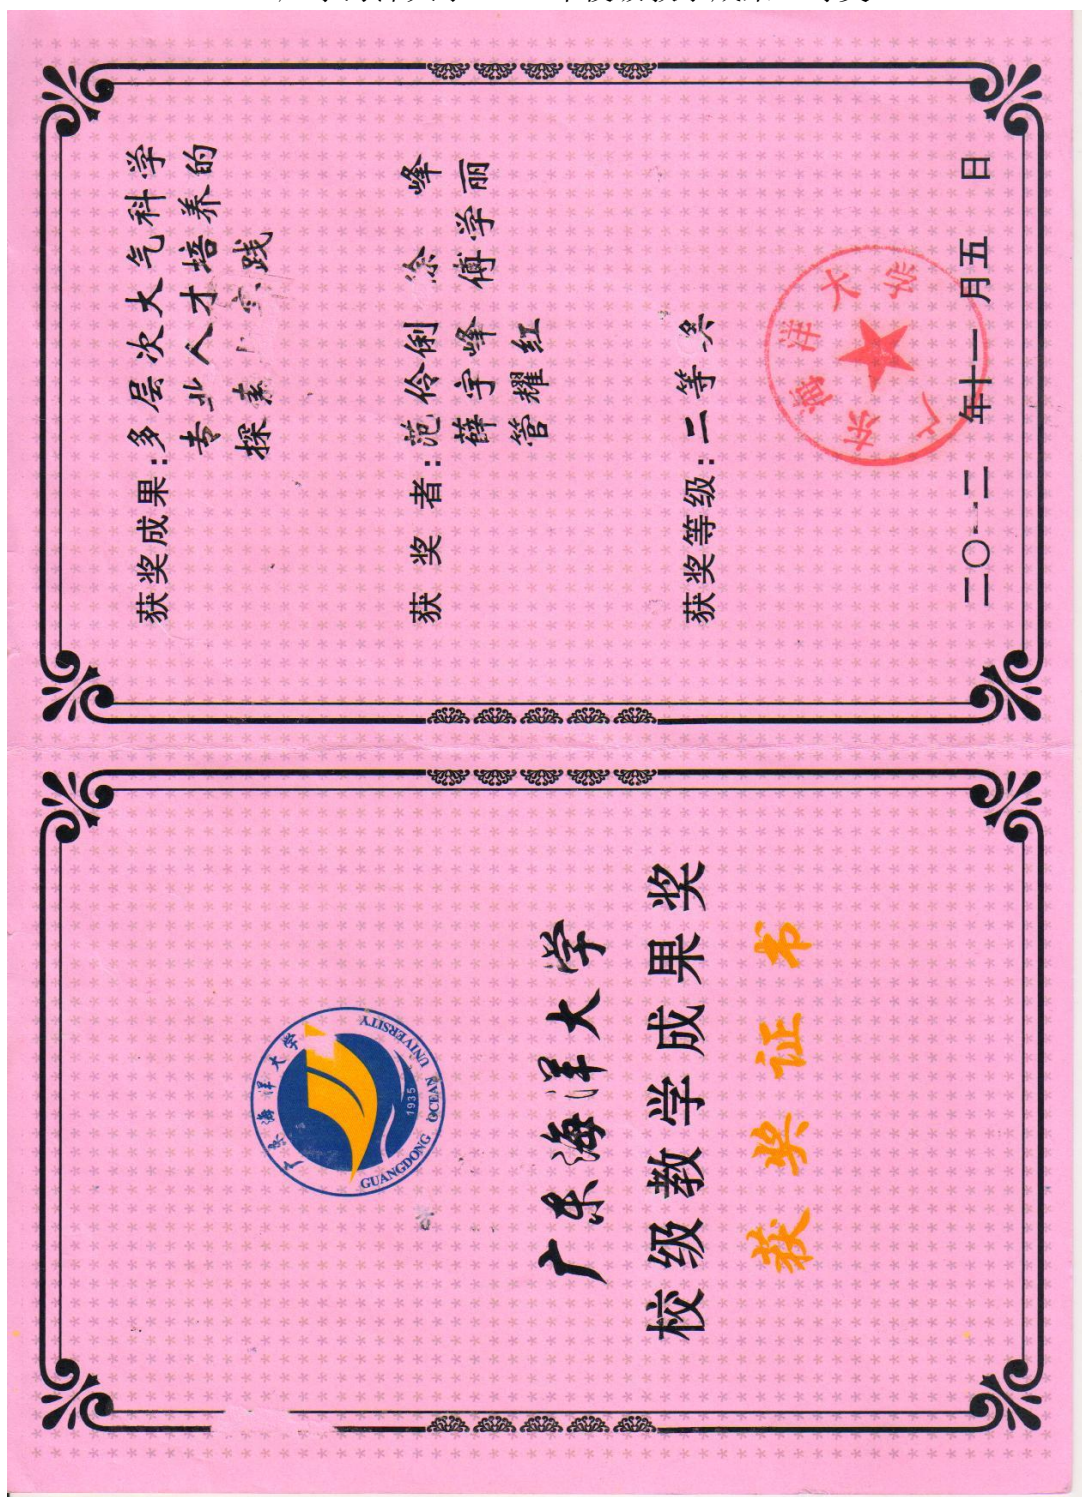 广东海洋大学
GUANGDONG OCEAN UNIVERSITY
1935
广东海洋大学
校级教学成果奖
获奖证书
获奖成果:多层次大气科学
专业人才培养的
探索与实践
获奖者:范伶俐 徐峰
薛宇峰 傅学丽
管耀红
获奖等级:二等奖
广东海洋大学
二〇一二年十一月五日